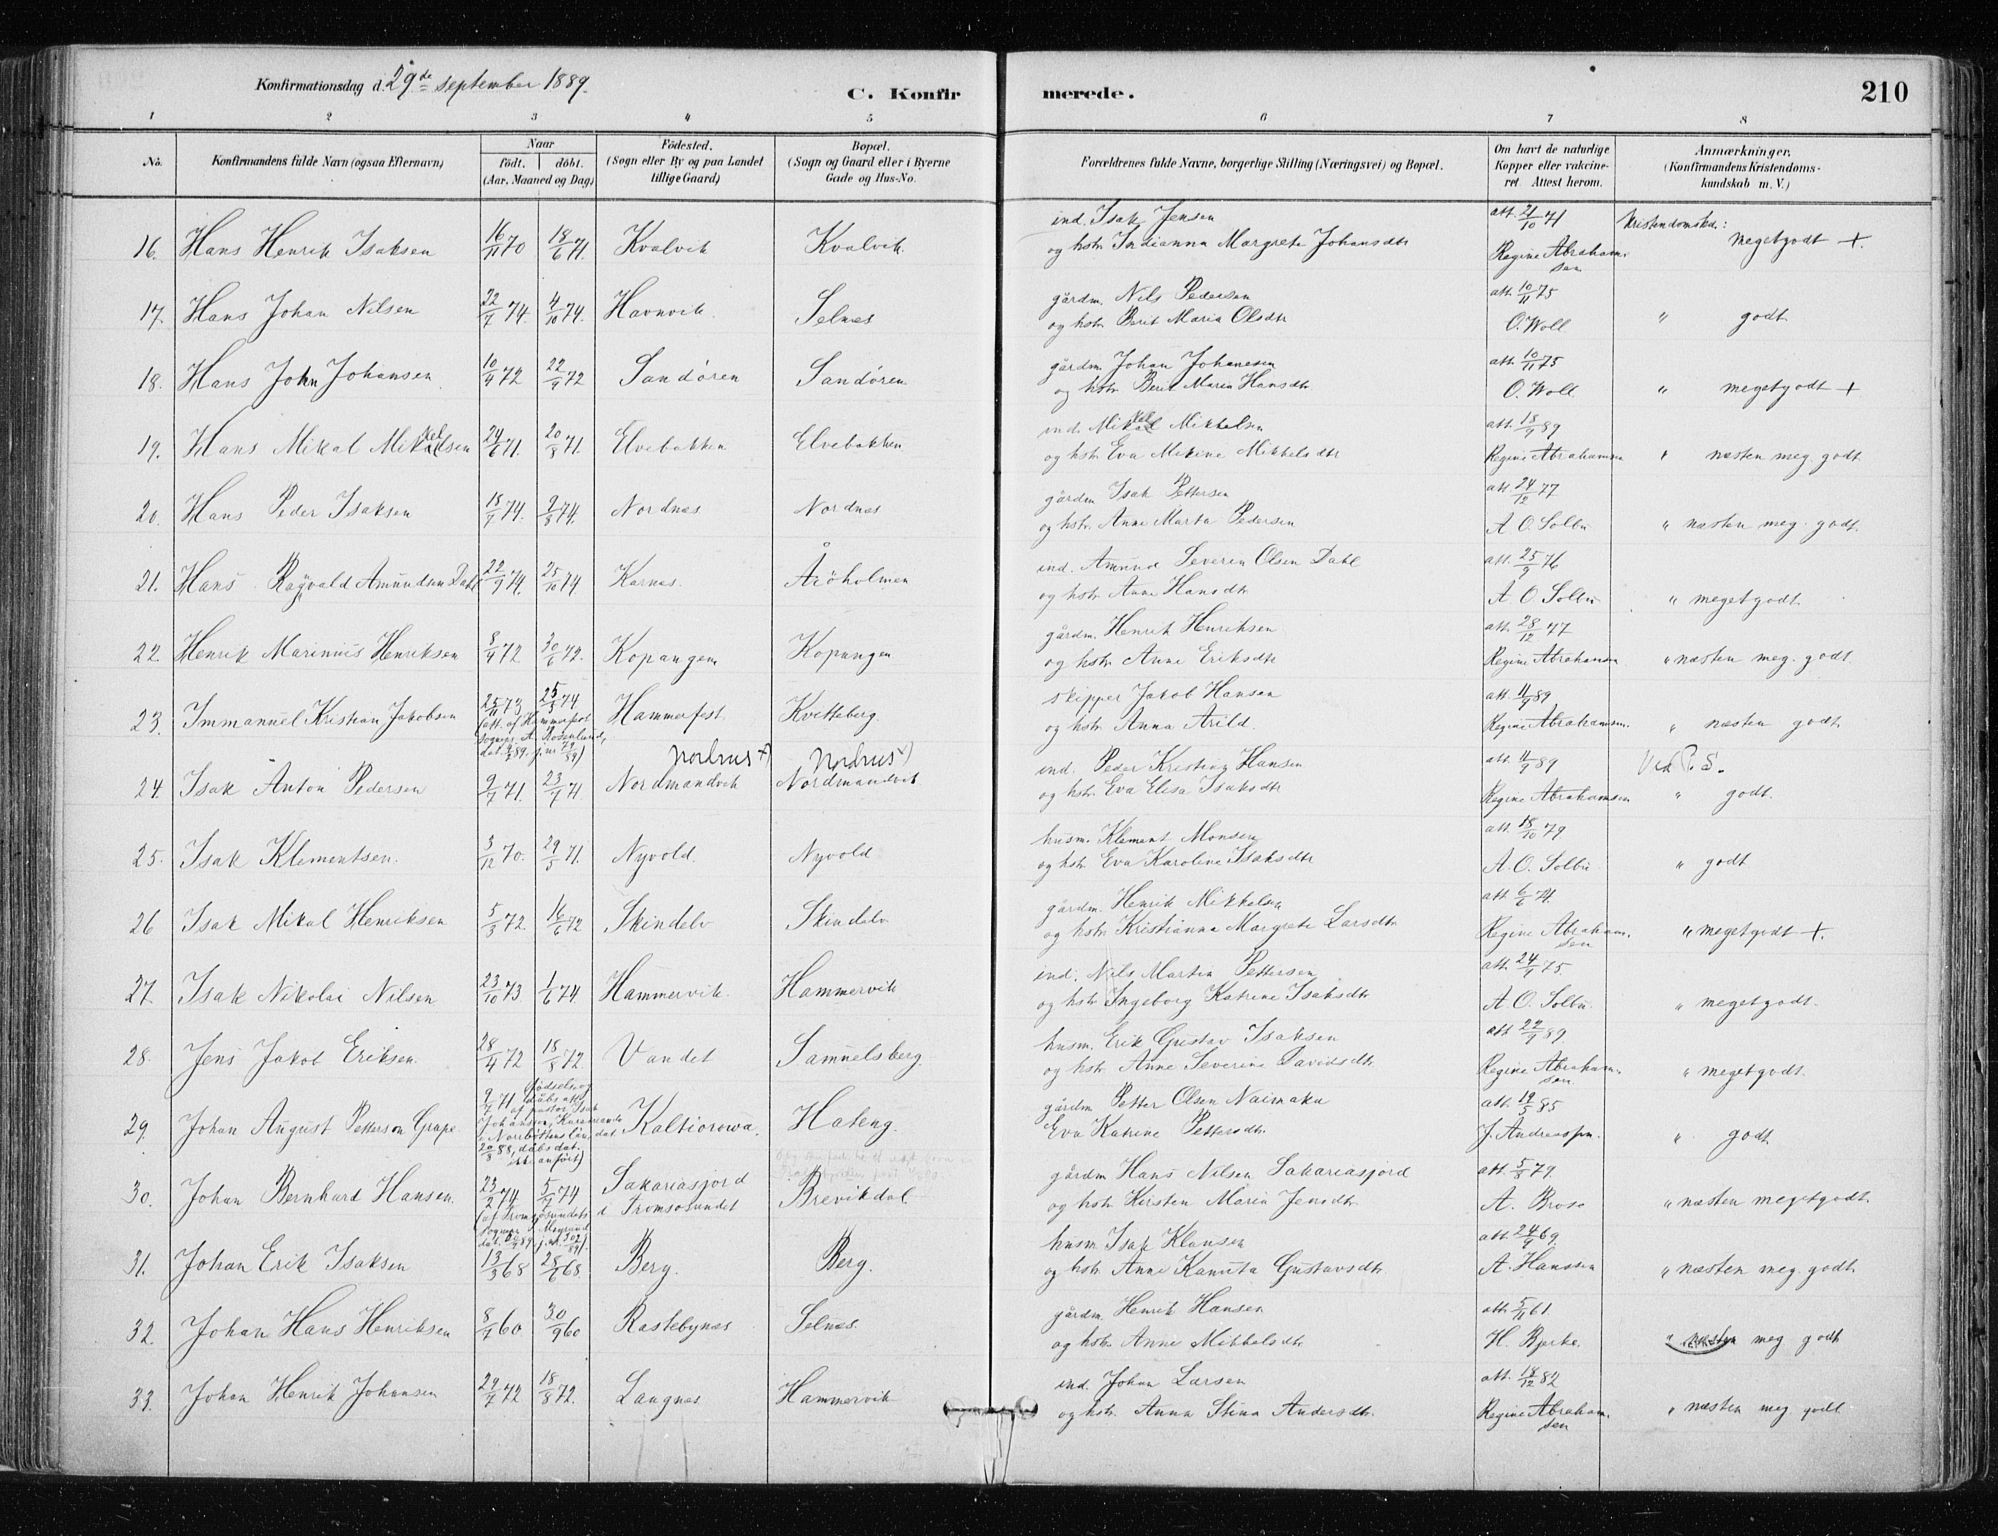 Konfirmationsdag d. 29de september 1889.
C. Konfirmerede.
210
1 2 3 4 5 6 7 8
No. Konfirmandens fulde Navn (ogsaa Efternavn) Naar født. døbt. (Aar, Maaned og Dag) Fødested. (Sogn eller By og paa Landet tillige Gaard) Bopæl. (Sogn og Gaard eller i Byerne Gade og Hus-No. Forældrenes fulde Navne, borgerlige Stilling (Næringsvei) og Bopæl. Om havt de naturlige Kopper eller vakcineret. Attest herom. Anmærkninger. (Konfirmandens Kristendomskundskab m. V.)
ind. Isak Jensen att. 21/10 71 Kristendomskd.:
16. Hans Henrik Isaksen 16/11 70 18/6 71. Kvalvik Kvalvik og hstr. Margrete Johansdtr Regine Abrahamsen megetgodt +.
gårdm. Nils Pedersen att. 10/11 75
17. Hans Johan Nilsen 22/7 74. 4/10 74. Havnvik. Selnes og hstr. Berit Maria Olsdtr O. Woll " godt.
gårdm Johan Johanesen att. 10/11 75
18. Hans John Johansen 10/4 72 22/9 72 Sandøren Sandøren og hstr. Berit Maria Hansdtr O. Woll " megetgodt +
ind. Mikkel Mikkelsen att. 18/9 89
19. Hans Mikal Mikkelsen 24/6 71. 20/8 71. Elvebakken Elvebakken og hstr. Eva Mikkelsdtr Regine Abrahamsen " næsten meg. godt
gårdm Isak Pettersen att. 24/12 77
20. Hans Peder Isaksen 18/7 74. 2/8 74. Nordnes Nordnes og hstr. Anne Marta Pedersen A O. Solbu " næsten meg. godt.
ind. Amund Severin Olsen Dahl att. 25/9 76
21. Hans Ragvald Amundsen Dahl 22/9 74. 25/10 74 Karnes. Årøholmen og hstr. Anne Hansdtr A O. Solbu " megetgodt.
gårdm. Henrik Henriksen att. 28/12 77
22. Henrik Marinius Henriksen 8/4 72 30/6 72. Kopangen Kopangen og hstr. Anne Eriksdtr Regine Abrahamsen " næsten meg. godt.
skipper Jakob Hansen att. 11/9 89
23. Immanuel Kristian Jakobsen 25/11 73 25/5 74 Hammerfest. Kvitteberg. og hstr. Anna Arild Regine Abrahamsen. " næsten godt.
(att. af Hammerfest
Nordnes +) Nordnes +)
ind. Peder Kristian Hansen att. 11/9 89 Ved P. S.
24. Isak Anton Pedersen 9/7 71. 23/7 71 Nordmandvik Nordmandvik og hstr. Eva Elisa Isaksdtr Regine Abrahamsen " godt.
husm. Klement Monsen att. 18/10 79
25. Isak Klementsen. 3/12 70. 29/5 71. Nyvold. Nyvold og hstr. Eva Karoline Isaksdtr A. O. Solbu " godt
gårdm. Henrik Mikkelsen att. 6/6 74.
26 Isak Mikal Henriksen 5/3 72. 16/6 72 Skindelv Skindelv og hstr. Kristianna Margrete Larsdtr. Regine Abrahamsen " megetgodt +.
ind. Nils Martin Pettersen att. 24/9 75.
27. Isak Nikolai Nilsen 23/10 73. 1/6 74. Hammervik. Hammervik og hstr. Ingeborg Katrine Isaksdtr. A O. Solbu. " megetgodt.
husm. Erik Gustav Isaksen att. 22/9 89.
28. Jens Jakob Eriksen. 28/4 72 18/8 72 Vandet Samuelsberg. og hstr. Anne Severine Davidsdtr. Regine Abrahamsen. " megetgodt.
9/7 71. (fødsels- og dåbsatt. af pastor Isak gårdm Petter Olsen Naimaka att. 19/5 85
29. Johan August Petterson Grape. Johanson, Karesuando i Norrbottens län, dat. 20/8 88, dåbsdat. ikke anført) Kaltiorowa. Hateng. Eva Katrine Pettersdtr. J. Andreassen. " godt
gårdm Hans Nilsen Sakariasjord att. 5/8 79.
30. Johan Bernhard Hansen. 23/2 74 5/7 74 Sakariasjord i Tromsøsundet Brevikdal. og hstr. Kirsten Maria Jensdtr. A. Brose " næsten megetgodt.
husm Isak Klausen att. 24/9 69
31. Johan Erik Isaksen 13/3 68 28/6 68. Berg. Berg. og hstr. Anne Kanuta Gustavsdtr. A. Hanssen " næsten meg. godt.
gårdm. Henrik Hansen att. 5/11 61.
32. Johan Hans Henriksen 8/7 60 30/9 60 Rastebynes Selnes. og hstr. Anne Mikkelsdtr. H. Bjerke " næsten meg godt
ind. Johan Larsen att. 18/12 82
33. Johan Henrik Johansen 29/7 72 18/8 72. Langnes Hammervik og hstr. Anna Stina Andersdtr. Regine Abrahamsen " næsten meg godt